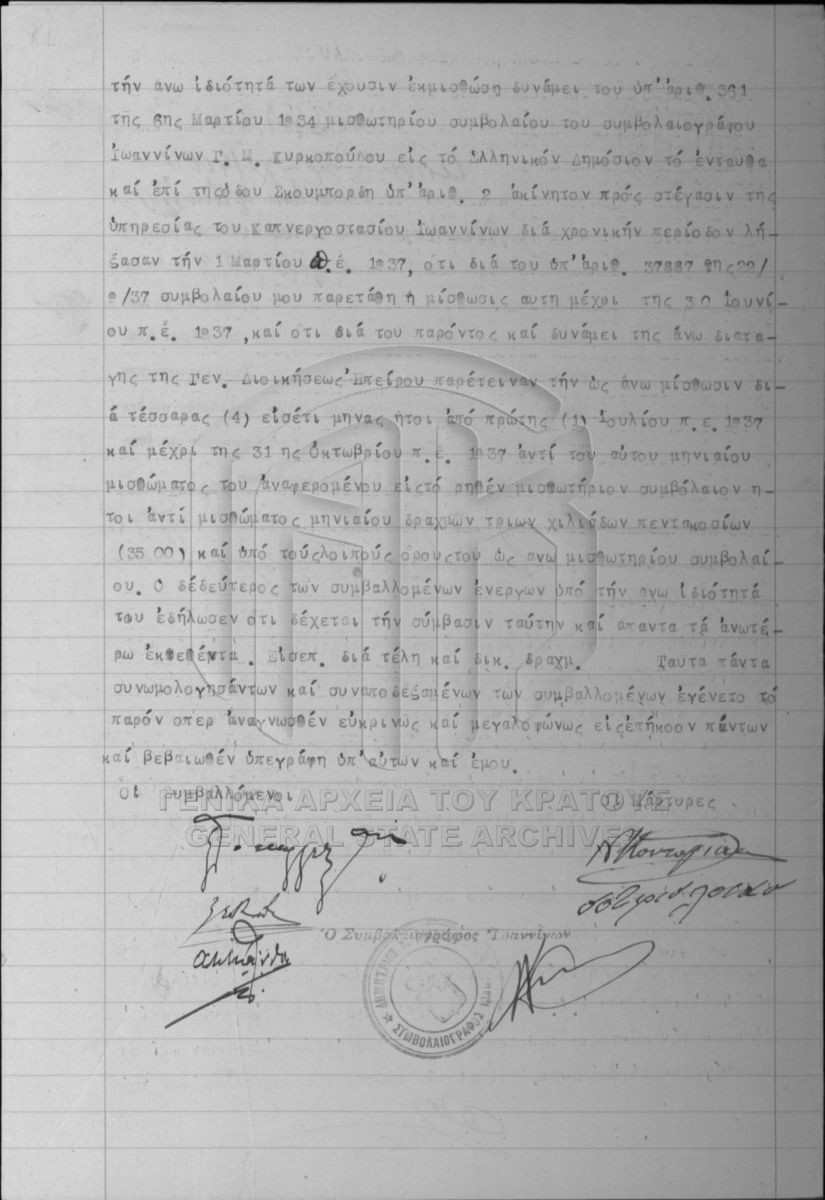 τήν ανω ἰδιότητά των ἐχουσιν ἐκμισθώση δυνάμει του ὑπ'ἀριθ. 361
της 6ης Μαρτίου 1934 μισθωτηρίου συμβολαίου του συμβολαιογράφου
Ιωαννίνων Γ. Μ. Κυρκοπούλου εἰς τό Ελληνικόν Δημόσιον τό ἐνταυθα
καί ἐπί τηςόδου Σκουμπορδη ὑπ'ἀριθ. 2 ἀκίνητον πρός στέγασιν της
ὑπηρεσίας του Καπνεργοστασίου Ἰωαννίνων διά χρονικήν περίοδον λή-
ξασαν τήν 1 Μαρτίου π.έ. 1937, οτι διά του ὑπ'ἀριθ. 37887 της 22/
9/37 συμβολαίου μου παρετάθη ἡ μίσθωσις αυτη μέχρι της 30 Ιουνί-
ου π.έ. 1937 ,καί οτι διά του παρόντος καί δυνάμει της ἄνω διατα-
γης της Γεν. Διοικήσεως Ἐπείρου παρέτειναν τήν ὡς ἄνω μίσθωσιν δι-
ά τέσσαρας (4) εἰσέτι μηνας ἤτοι ἀπό πρώτης (1) Ἰουλίου π.ε. 1937
καί μέχρι της 31 ης Ὀκτωβρίου π.έ. 1937 ἀντί του αὐτου μηνιαίου
μισθώματος του ἀναφερομένου εἰςτό ρηθέν μισθωτήριον συμβόλαιον η-
τοι ἀντί μισθώματος μηνιαίου δραχμων τριων χιλιάδων πεντακοσίων
(35 00) καί ὑπό τούςλοιπούς ὁρουςτου ὡς ανω μισθωτηρίου συμβολαί-
ου. Ο δέδεύτερος των συμβαλλομένων ἐνεργων ὑπό τήν ανω ἰδιότητά
του ἐδήλωσεν οτι δέχεται τήν σύμβασιν ταύτην καί απαντα τά ἀνωτέ-
ρω ἐκτεθέντα . Εἰσεπ. διά τέλη καί δικ. δραχμ. Ταύτα πάντα
συνωμολογησάντων καί συναποδεξαμένων των συμβαλλομένων ἐγένετο τό
παρόν οπερ ἀναγνωσθέν εὐκρινως καί μεγαλοφώνως εἰςἐπήκοον πάντων
καί βεβαιωθέν ὑπεγράφη ὑπ'αὐτων καί ἐμου.
Οἱ συμβαλλόμενοι Οἱ Μάρτυρες
ΓΕΝΙΚΑ ΑΡΧΕΙΑ ΤΟΥ ΚΡΑΤΟΥΣ
GENERAL STATE ARCHIVES
Ὁ Συμβολαιογράφος Ἰωαννίνων
ΔΗΜΗΤΡΙΟΣ
ΣΥΜΒΟΛΑΙΟΓΡΑΦΟΣ